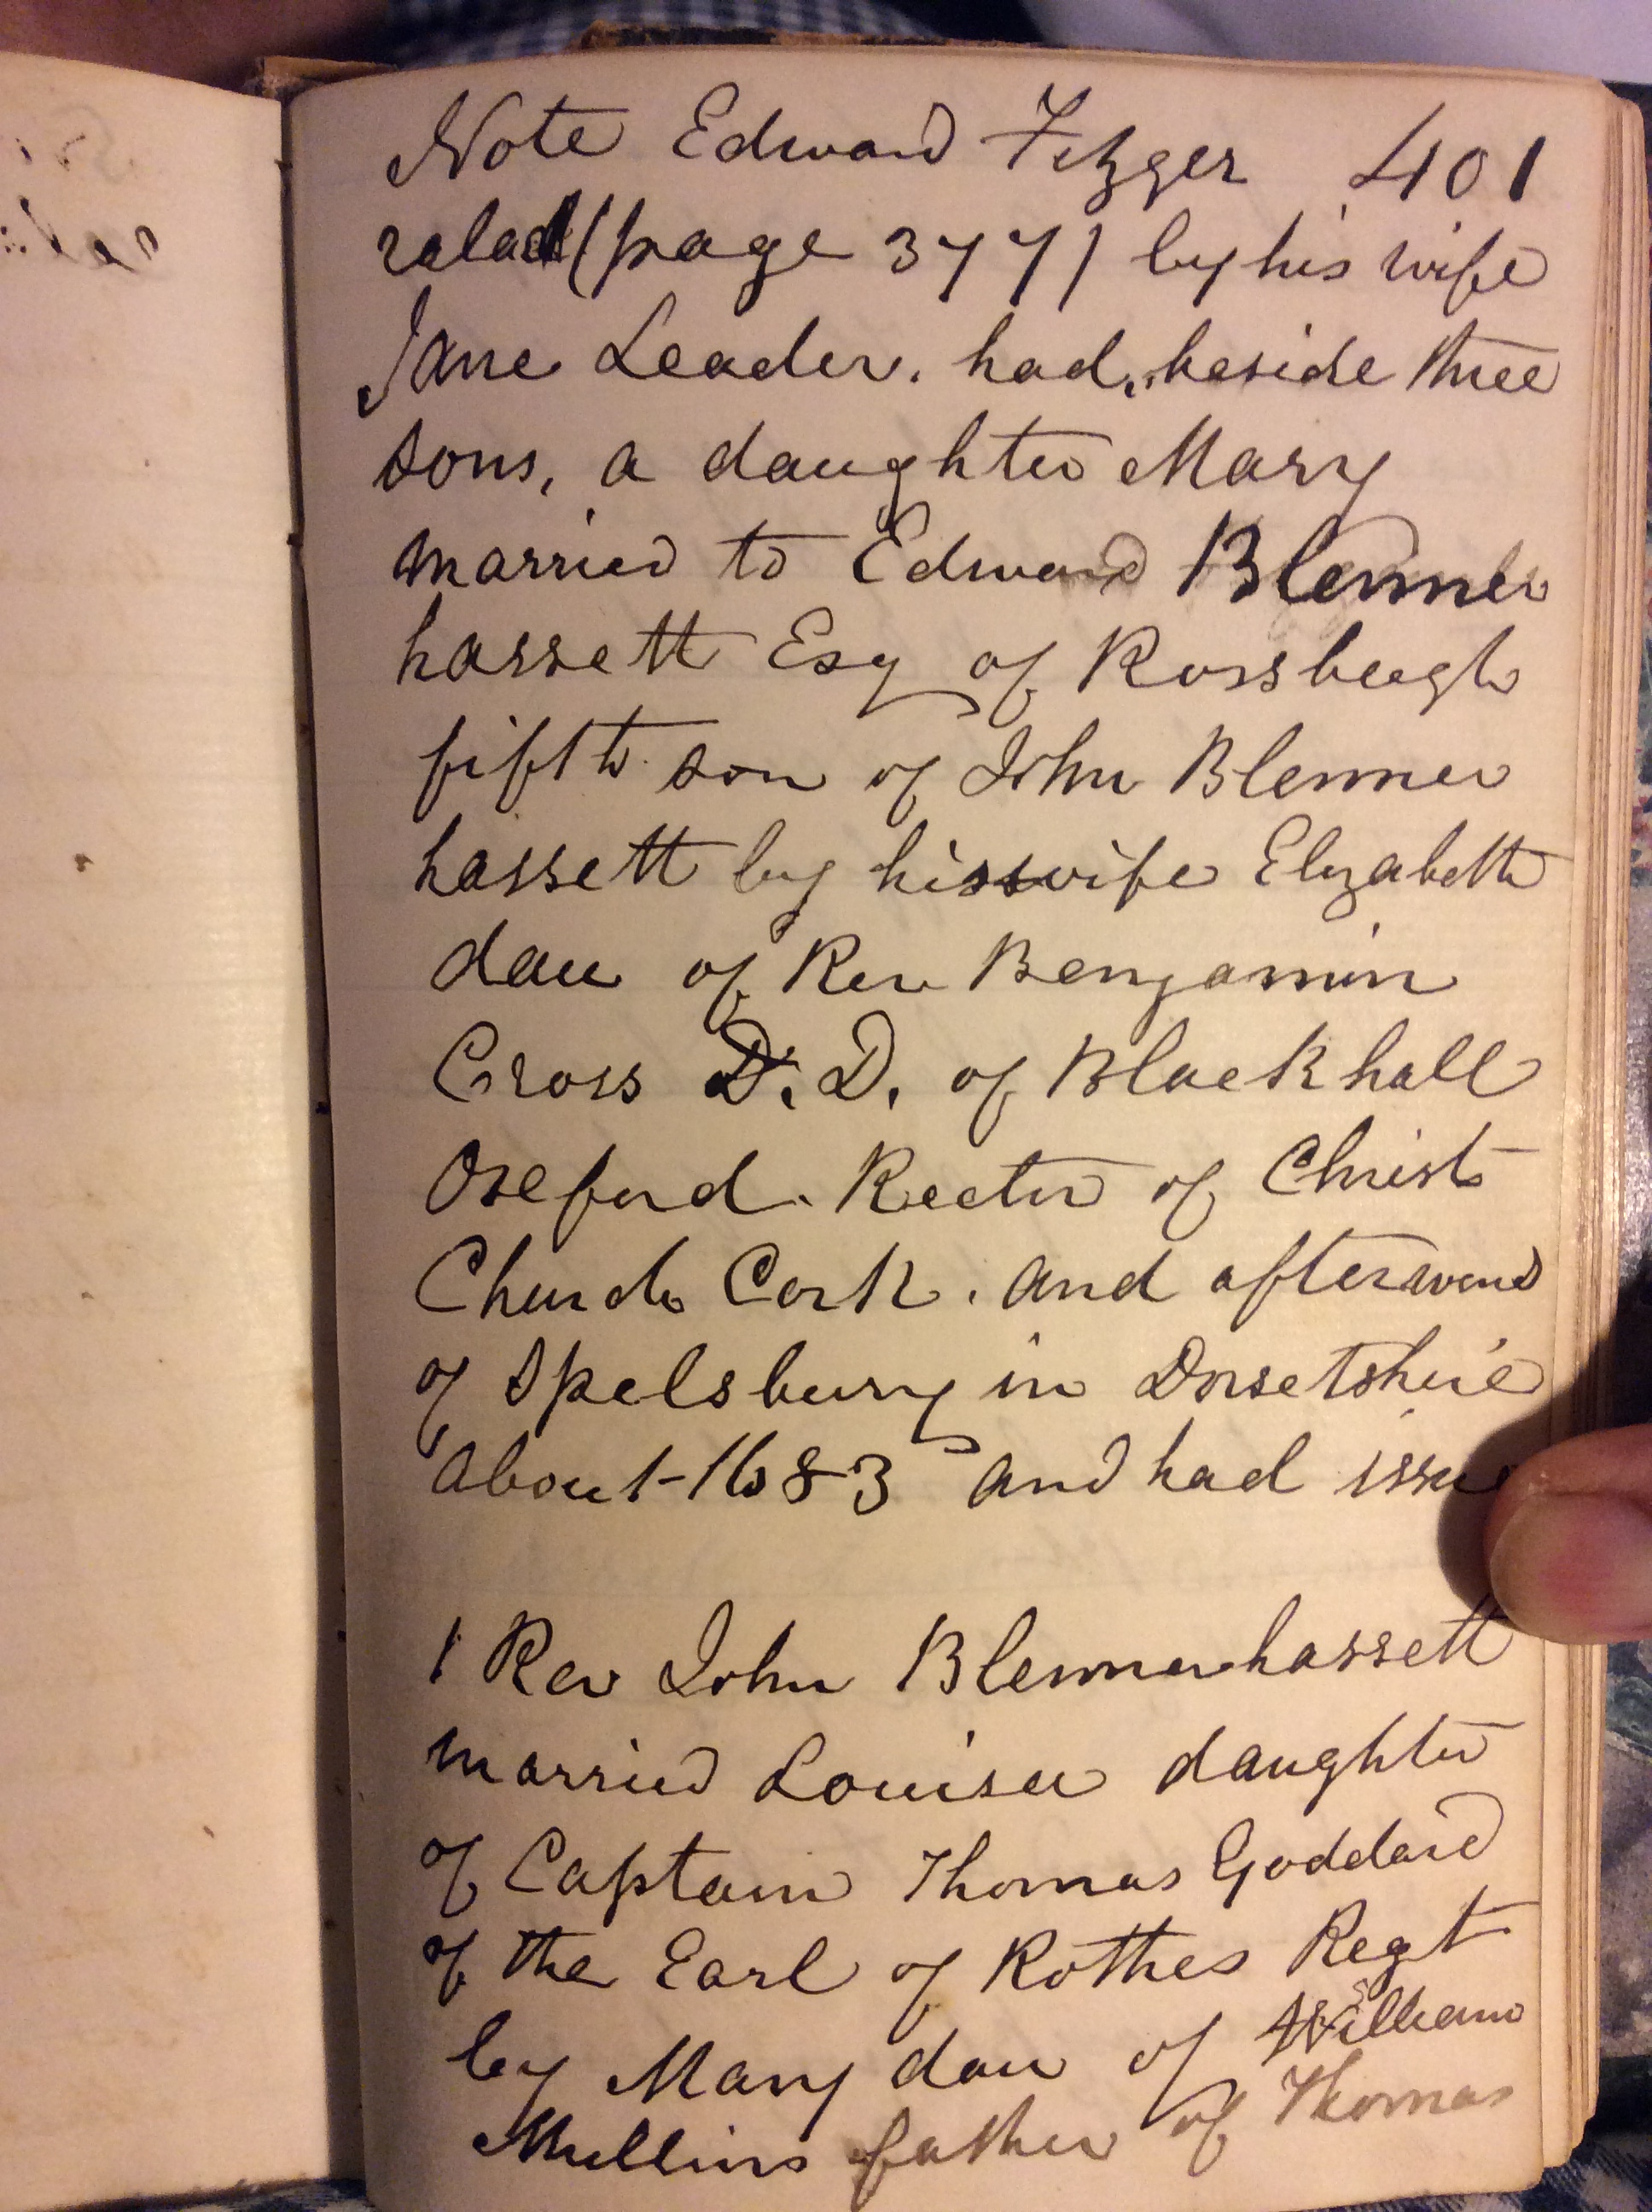 Note Edward Fitzger 401
rald (page 377) by his wife
Jane Leader, had, beside three
sons, a daughter Mary
married to Edward Blenner
hassett Esq of Rossbeigh
fifth son of John Blenner
hassett by his wife Elizabeth
dau of Rev Benjamin
Cross D. D. of Blackhall
Oxeford. Rector of Christ
Church Cork. and afterward
of Spelsbury in Dorsetshire
about 1683 and had issue
1 Rev John Blennerhassett
married Louisa daughter
of Captain Thomas Goddard
of the Earl of Rothes Regt
by Mary dau of William
Mullins father of Thomas